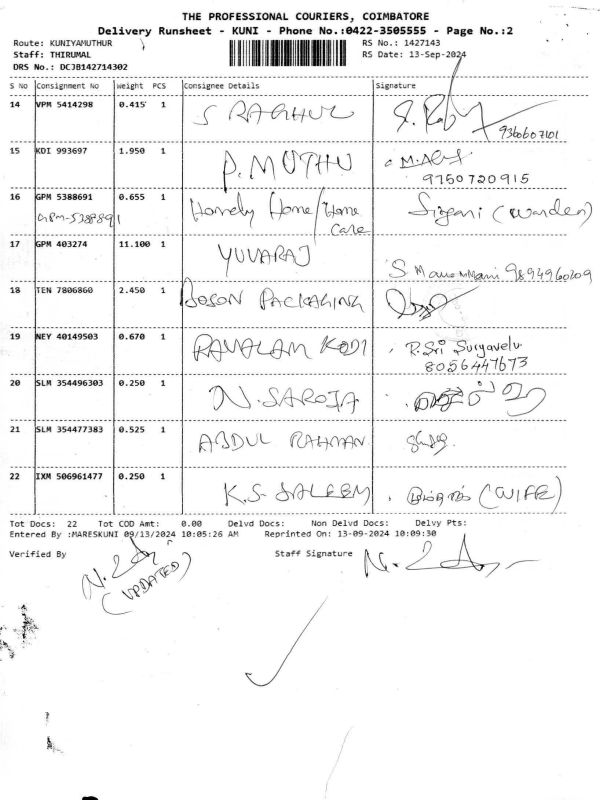 THE PROFESSIONAL COURIERS, COIMBATORE
Delivery Runsheet - KUNI - Phone No.:0422-3505555 - Page No.:2
Route: KUNIYAMUTHUR RS No.: 1427143
Staff: THIRUMAL RS Date: 13-Sep-2024
DRS No.: DCJB142714302
S No Consignment No Weight PCS Consignee Details Signature
14 VPM 5414298 0.415 1 S RAGHUL
9360607101
15 KDI 993697 1.950 1 P. MUTHU
9750720915
16 GPM 5388691 0.655 1 Homely Home/Home Care (Warden)
GPM-5388691
17 GPM 403274 11.100 1 YUVARAJ
9894960209
18 TEN 7806860 2.450 1 BOSON PACKAGING
19 NEY 40149503 0.670 1 KODI R. Sri Suryavelu
8056447673
20 SLM 354496303 0.250 1 N. SAROJA
21 SLM 354477383 0.525 1 ABDUL RAHMAN
22 IXM 506961477 0.250 1 K.S. SALEEM (WIFE)
Tot Docs: 22 Tot COD Amt: 0.00 Delvd Docs: Non Delvd Docs: Delvy Pts:
Entered By :MARESKUNI 09/13/2024 10:05:26 AM Reprinted On: 13-09-2024 10:09:30
Verified By Staff Signature
(UPDATED)